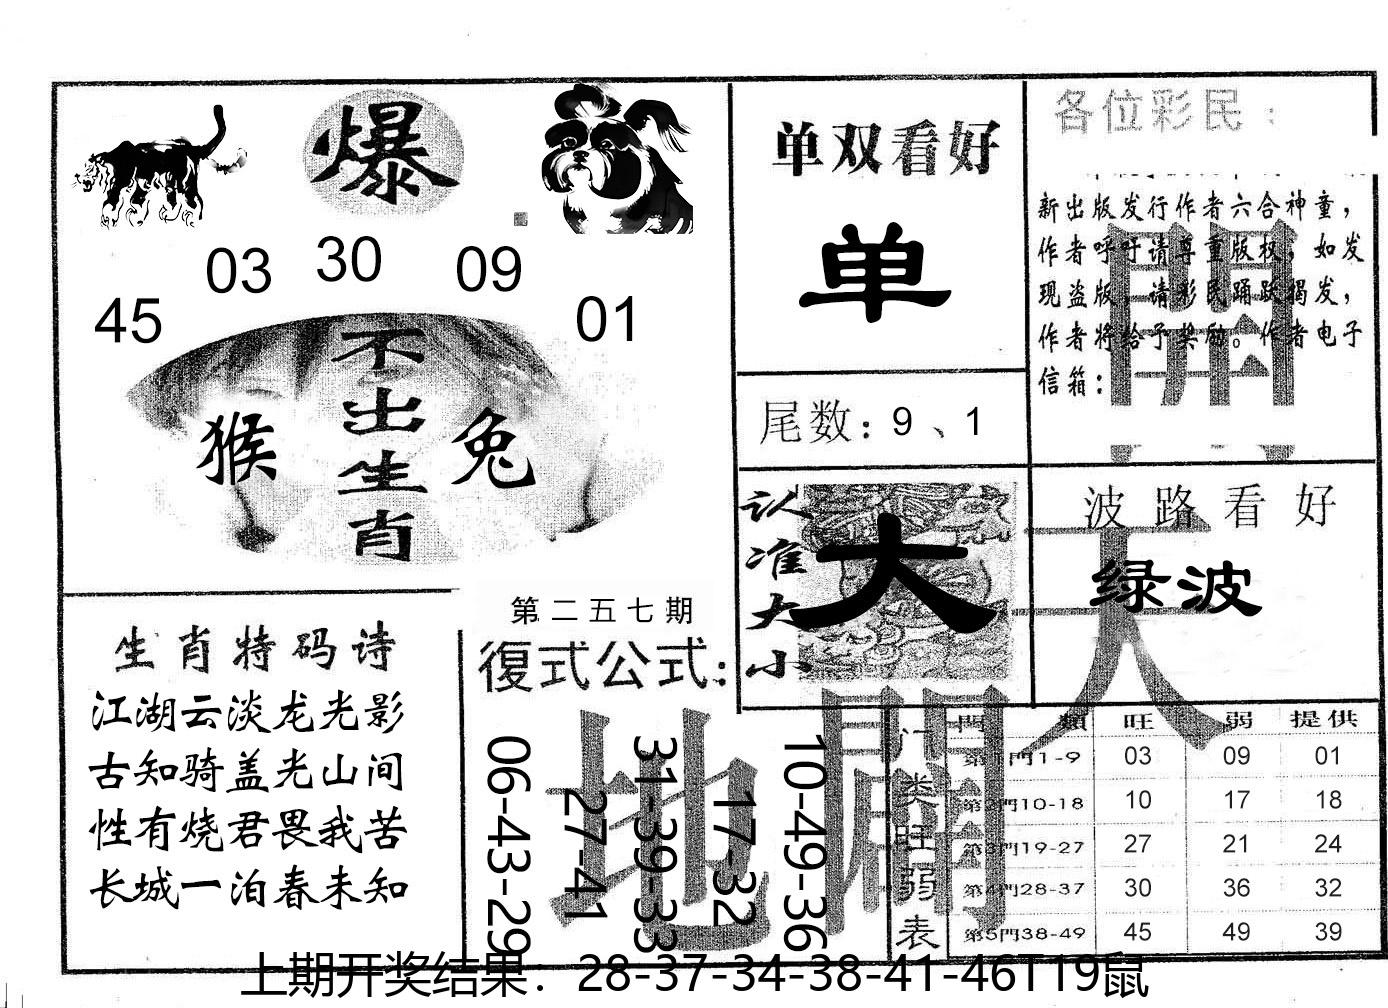 爆
03 30 09
45 01
不出生肖
猴 兔
单双看好
单
尾数：9、1
各位彩民：
新出版发行作者六合神童，
作者呼吁请尊重版权，如发
现盗版，请彩民踊跃揭发，
作者将给予奖励。作者电子
信箱：
认准大小
大
波路看好
绿波
生肖特码诗
江湖云淡龙光影
古知骑盖光山间
性有烧君畏我苦
长城一泊春未知
第二五七期
復式公式：
06-43-29
27-41
31-39-33
17-32
10-49-36
天地
门类旺弱表
門類 旺 弱 提供
第1門1-9 03 09 01
第2門10-18 10 17 18
第3門19-27 27 21 24
第4門28-37 30 36 32
第5門38-49 45 49 39
上期开奖结果：28-37-34-38-41-46T19鼠